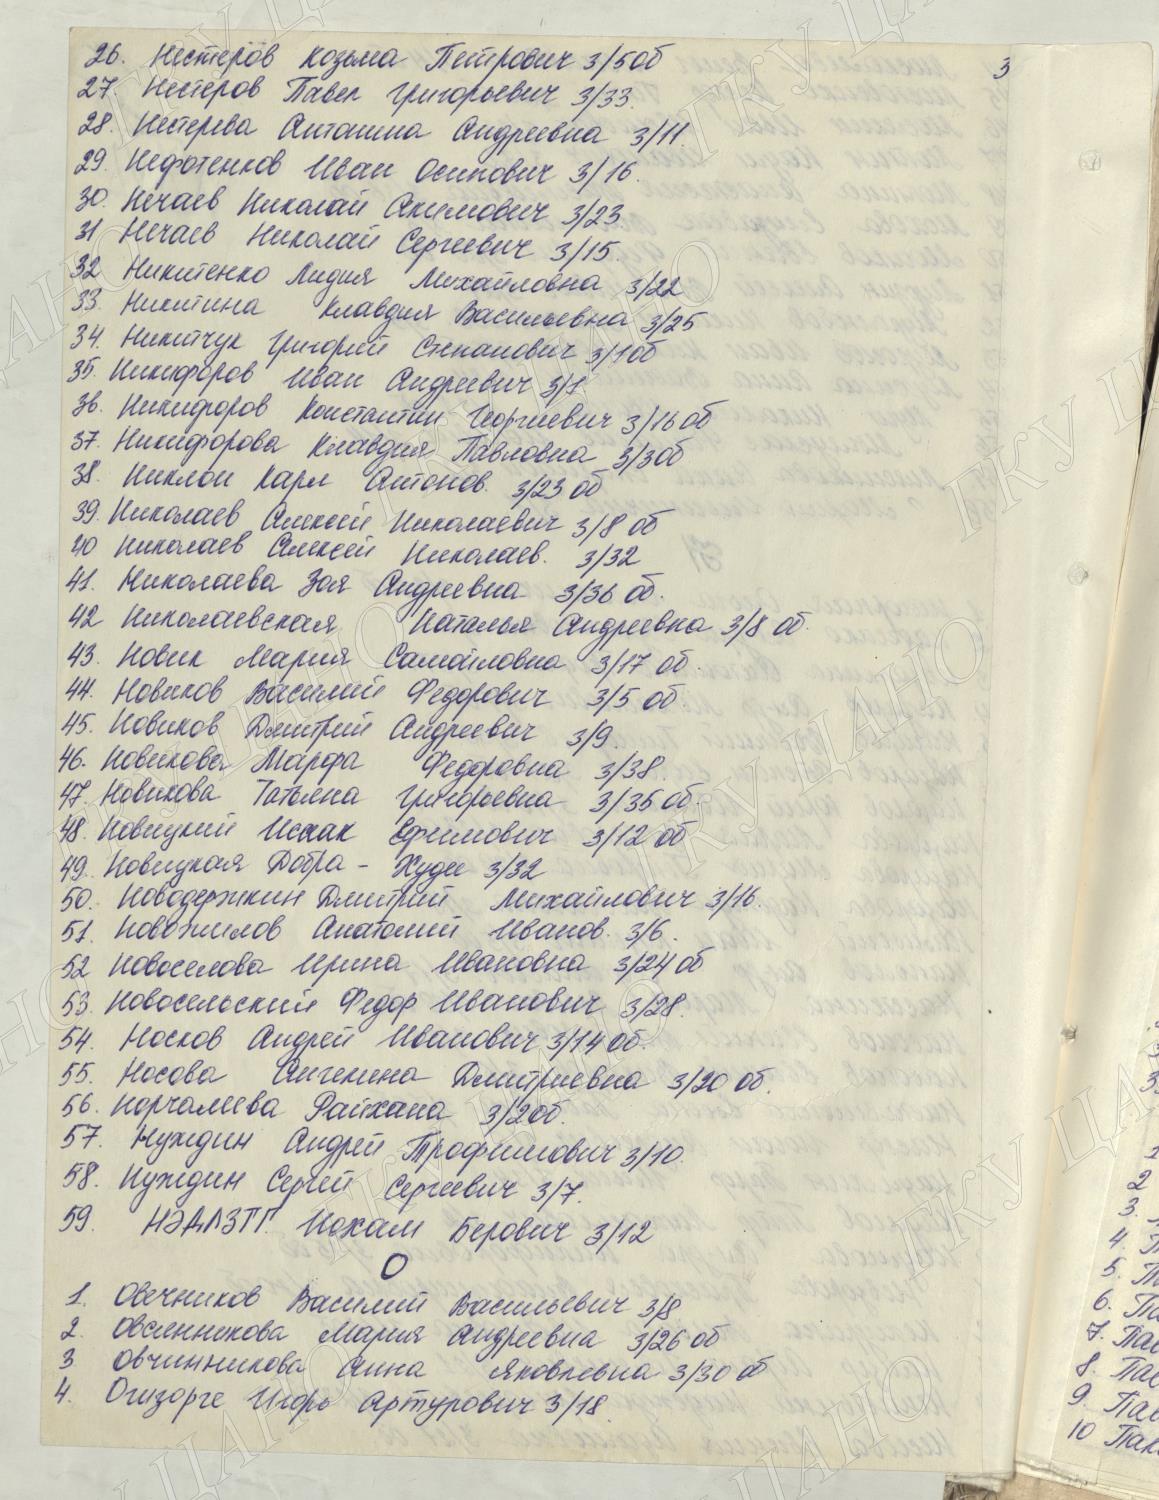 3
26. Нестеров Козьма Петрович 3/5об
27. Нестеров Павел Григорьевич 3/33.
28. Нестерева Антонина Андреевна 3/11.
29. Нефотенков Иван Осипович 3/16.
30. Нечаев Николай Акимович 3/23.
31 Нечаев Николай Сергеевич 3/15.
32 Никитенко Лидия Михайловна 3/22
33. Никитина Клавдия Васильевна 3/25
34. Никитчук Григорий Степанович 3/1об
35. Никифоров Иван Андреевич 3/1
36. Никифоров Константин Георгиевич 3/16 об
37. Никифорова Клавдия Павловна 3/3об
38. Никлои Карл Антонов. 3/23 об
39. Николаев Алексей Николаевич 3/8 об
40 Николаев Алексей Николаев. 3/32
41. Николаева Зоя Андреевна 3/36 об.
42 Николаевская Наталья Андреевна 3/8 об.
43. Новик Мария Самойловна 3/17 об.
44. Новиков Василий Федорович 3/5 об.
45. Новиков Дмитрий Андреевич 3/9.
46. Новикова Марфа Федоровна 3/38.
47. Новикова Татьяна Григорьевна 3/35 об.
48. Новицкий Исаак Ефимович 3/12 об
49. Новицкая Добра - Худи 3/32
50. Новодержкин Дмитрий Михайлович 3/16.
51. Новожилов Анатолий Иванов. 3/6.
52 Новоселова Ирина Ивановна 3/24 об
53. Новосельский Федор Иванович 3/28.
54. Носков Андрей Иванович 3/14 об.
55. Носова Ангелина Дмитриевна 3/20 об.
56. Норчалеева Райхана 3/2об.
57. Нуждин Андрей Трофимович 3/10.
58. Нуждин Сергей Сергеевич 3/7.
59. Иохам Берович 3/12
О
1. Овечников Василий Васильевич 3/8
2. Овсянникова Мария Андреевна 3/26 об
3 Овчинникова Анна Яковлевна 3/30 об
4. Огизорге Игорь Артурович 3/18.
1
2
3.
4. П
5. Па
6. Па
7. Пав
8. Пав
9. Пав
10 Пак